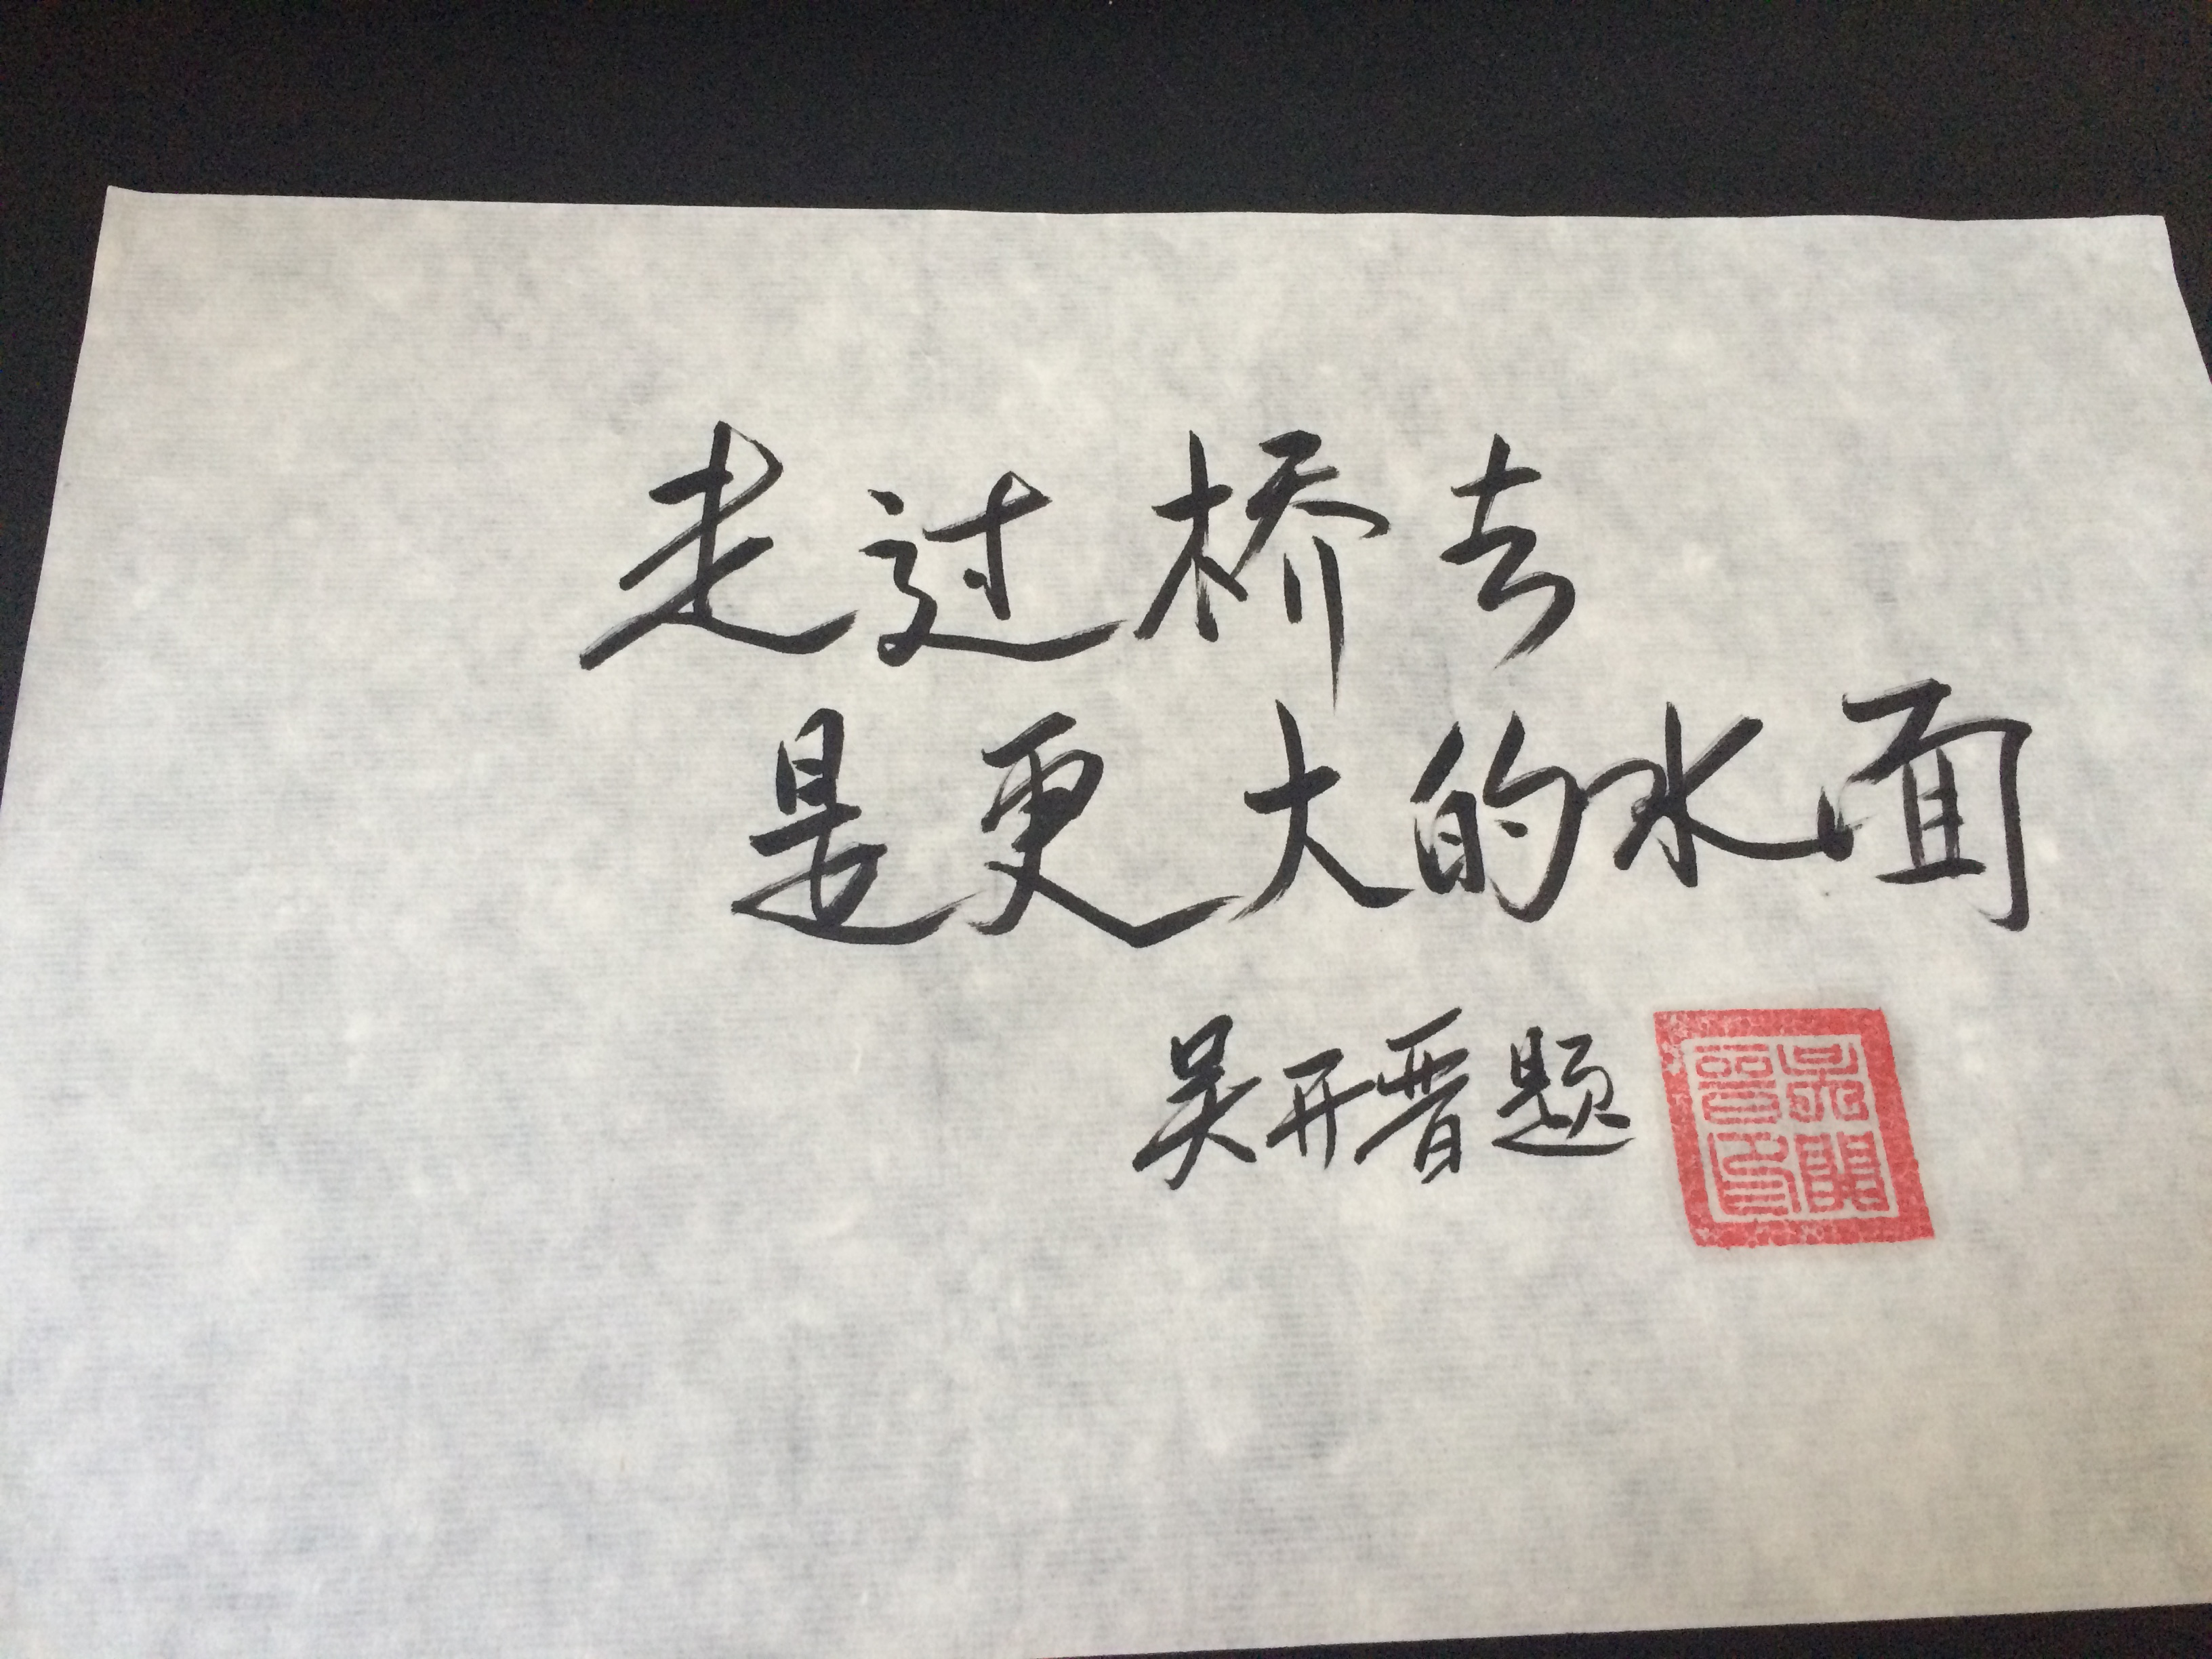 走过桥去
是更大的水面
吴开晋题
吴開晋印